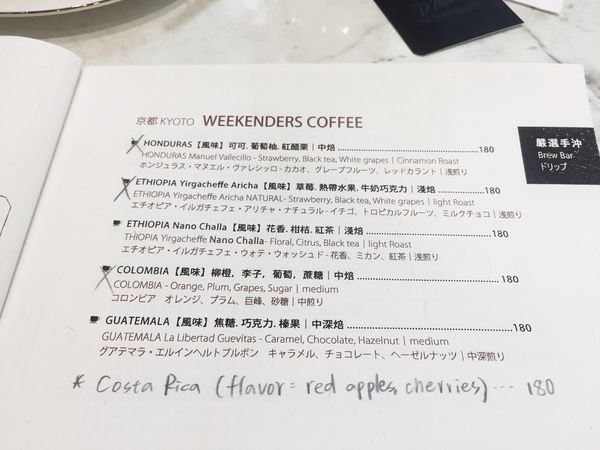 京都 KYOTO WEEKENDERS COFFEE
HONDURAS【風味】可可. 葡萄柚. 紅醋栗｜中焙 180
HONDURAS Manuel Vallecillo - Strawberry, Black tea, White grapes | Cinnamon Roast
ホンジュラス・マヌエル・ヴァレシッロ - カカオ、グレープフルーツ、レッドカラント | 浅煎り
ETHIOPIA Yirgacheffe Aricha【風味】草莓. 熱帶水果. 牛奶巧克力｜淺焙 180
ETHIOPIA Yirgacheffe Aricha NATURAL- Strawberry, Black tea, White grapes | light Roast
エチオピア・イルガチェフェ・アリチャ・ナチュラル - イチゴ、トロピカルフルーツ、ミルクチョコ | 浅煎り
ETHIOPIA Nano Challa【風味】花香. 柑桔. 紅茶｜淺焙 180
THIOPIA Yirgacheffe Nano Challa- Floral, Citrus, Black tea | light Roast
エチオピア・イルガチェフェ・ウォテ・ウォッシュド - 花香、ミカン、紅茶 | 浅煎り
COLOMBIA【風味】柳橙，李子，葡萄，蔗糖｜中焙 180
COLOMBIA - Orange, Plum, Grapes, Sugar | medium
コロンビア オレンジ、プラム、巨峰、砂糖 | 中煎り
GUATEMALA【風味】焦糖. 巧克力. 榛果｜中深焙 180
GUATEMALA La Libertad Guevitas - Caramel, Chocolate, Hazelnut | medium
グアテマラ・エルインヘルトブルボン キャラメル、チョコレート、ヘーゼルナッツ | 中深煎り
* Costa Rica (flavor = red apples, cherries) --- 180
嚴選手沖
Brew Bar
ドリップ